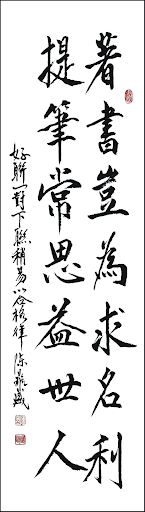 著書豈為求名利
提筆常思益世人
好聯一對下聯稍易以合格律